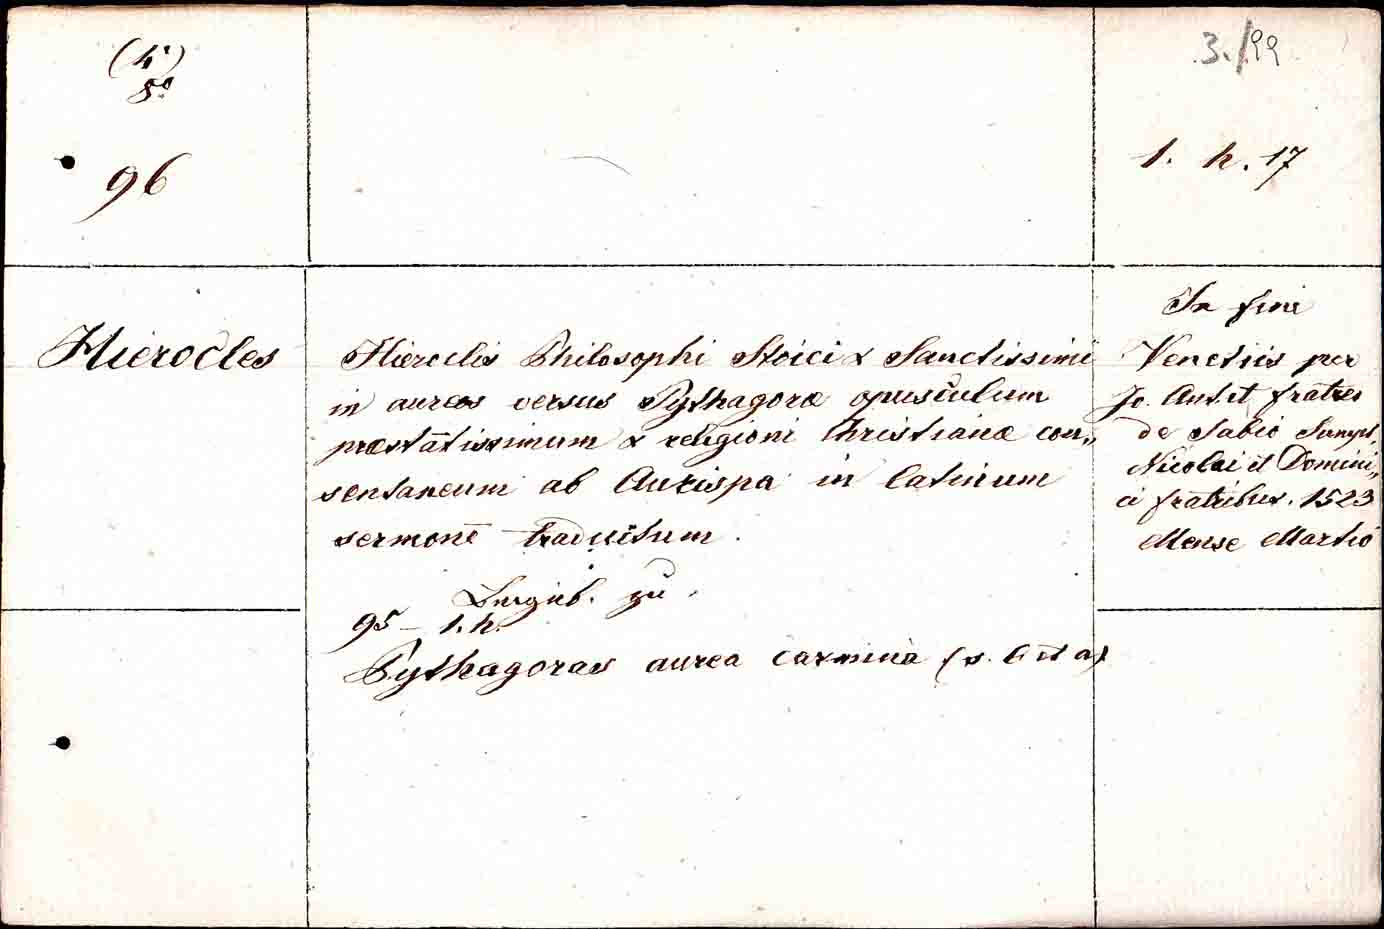 (4°)
8°
96
3./99
1. h. 17
Hierocles
Hieroclis Philosophi Stoici & Sanctissimi
in aureos versus Pythagoræ opusculum
præstãtissimum & religioni Christianæ con„
sentaneum ab Aurispa in latinum
sermonẽ traductum.
zu
95 – 1. h.
Pythagoras aurea carmina
In fine
Venetiis per
Jo. Ant. et fratres
de Sabio Sumpt.
Nicolai et Domini„
ci fratribus. 1523
Mense Martio